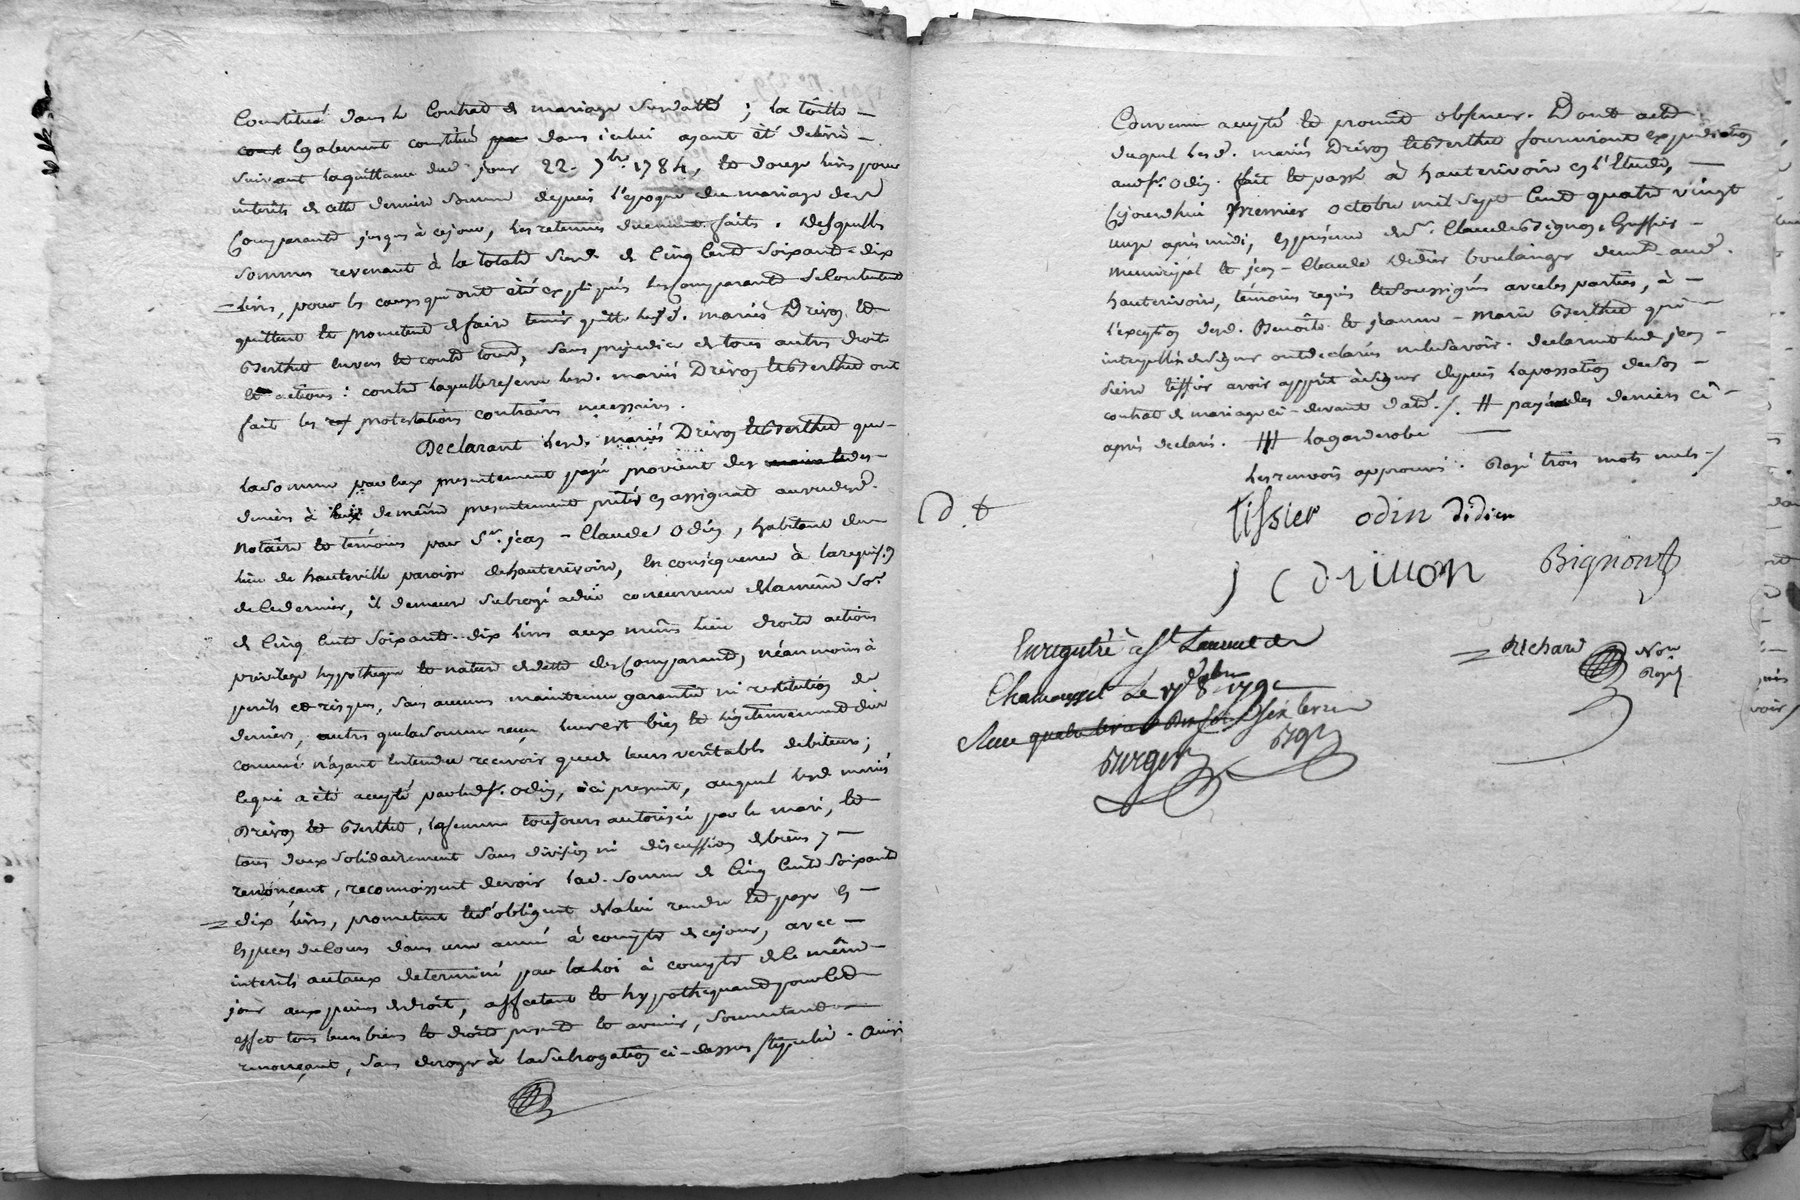 Constitué dans le Contrat de mariage susdatté ; la totte
egalement constitué dans icelui ayant été delivré
suivant laquittance dud. jour 22. 7bre 1784, et douze livres pour
interêts de cette derniere somme depuis l'epoque du mariage de la
Comparante jusques à cejour, les retenues faites. desquelles
sommes revenant à la totale de Cinq Cent Soixante-dix
livres, pour les causes que ont été expliqués les Comparants se Contentent
quittent et prometent de faire tenir quitte lesd. mariés Drivon et
Berthet envers et contre tous, sans prejudice de tous autres droit
et actions : contre laquelle reserve lesd. mariés Drivon et Berthet ont
fait les protestations contraires necessaires.
Declarant lesd. mariés Drivon et Berthet que
lasomme par eux presentement payée provient des
deniers à de même presentement prêtés en assignats au vu desd.
Notaire et temoins par Sr. jean-Claude Odin, habitant du
lieu de hauteville paroisse de hauterivoire, en conséquence à larequison
de cedernier, il demeure subrogé à due concurrence de la même so.e
de Cinq Cent Soixante-dix livres aux mêmes lieu droits actions
privilege hypotheque et nature de dette des Comparants, néanmoins à
perils et risques, sans aucune maintenue garantie ni restitution de
deniers, autres que la somme reçue leur est bien et légitimement düe
comme n'ayant entendu recevoir que de leurs veritables debiteurs ;
cequi a été accepté par led. sr. Odin, ici present, auquel lesd. mariés
Drivon et Berthet, lafemme toujours autorisée par le mari, et
tous deux solidairement sans division ni discussion de biens y
renonçant, reconnoissent devoir lad. somme de Cinq Cent Soixante
dix livres, prometent et s'obligent de la lui rendre et payer en
especes de cours dans une année à compter de cejour, avec
interêts autaux determiné par la Loi à compter de le même
jour aux peines de droit, affectant et hypothequant pour led.
effet tous leurs biens et droits presents et avenir, soumettant
renonçant, sans deroger à la subrogation ci-dessus stipulée. Ainsi
Convenu accepté et promit observer. Dont acte
duquel lesd. mariés Drivon et Berthet fourniront expedition
aud. sr. Odin. fait et passé à hauterivoire en l'Etude,
Cejourdhui premier octobre mil sept Cent quatre vingt
onze après midi, en présence de sr. Claude Bignon, greffier
municipal et jean-Claude Didier boulanger demt. aud.
hauterivoire, témoins requis et soussignés avec les parties, à
l'exception desd. Benoîte et jeanne-Marie Berthet qui
interpellés de signer ont declarés ne le savoir. declarant led. jean
tissier avoir apprit à signer depuis la passation de son
contrat de mariage ci-devant daté ./. # payé des deniers ci-
après declarés. ## lagarderobe
Les renvois approuvés. Rayé trois mots nuls ./
tissier odin didier
J C drivon Bignon
Richard Nore
Royal
Enregistré à St Laurent de
Chamousset Le 17 8bre 1791